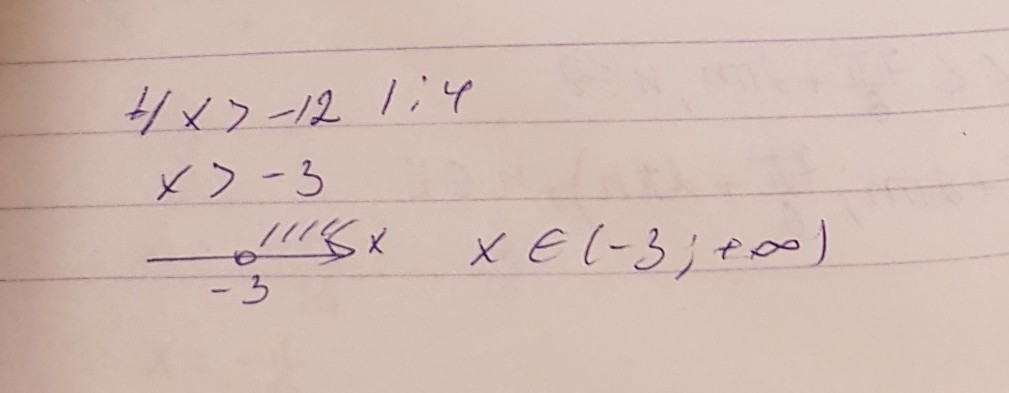 4x > -12 | : 4
x > -3
x x ∈ (-3; +∞)
-3